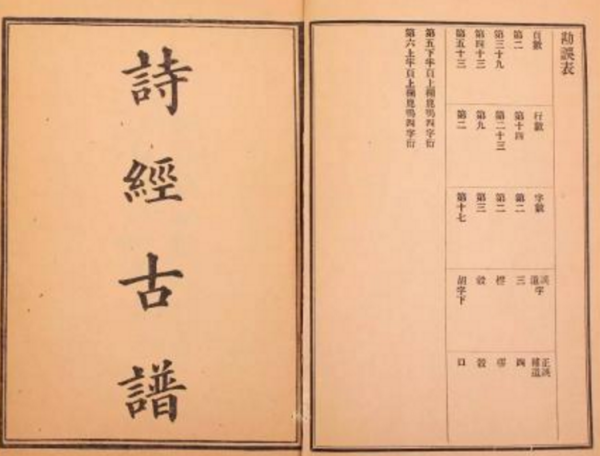 勘誤表
頁數 行數 字數 誤字 遺字 正誤 補遺
第二 第十四 第二 三 四
第三十九 第二十三 第二
第四十三 第九 第三
第五十三 第二 第十七 胡字下 口
第五下半頁上欄鹿鳴四字衍
第六上半頁上欄鹿鳴四字衍
詩經古譜